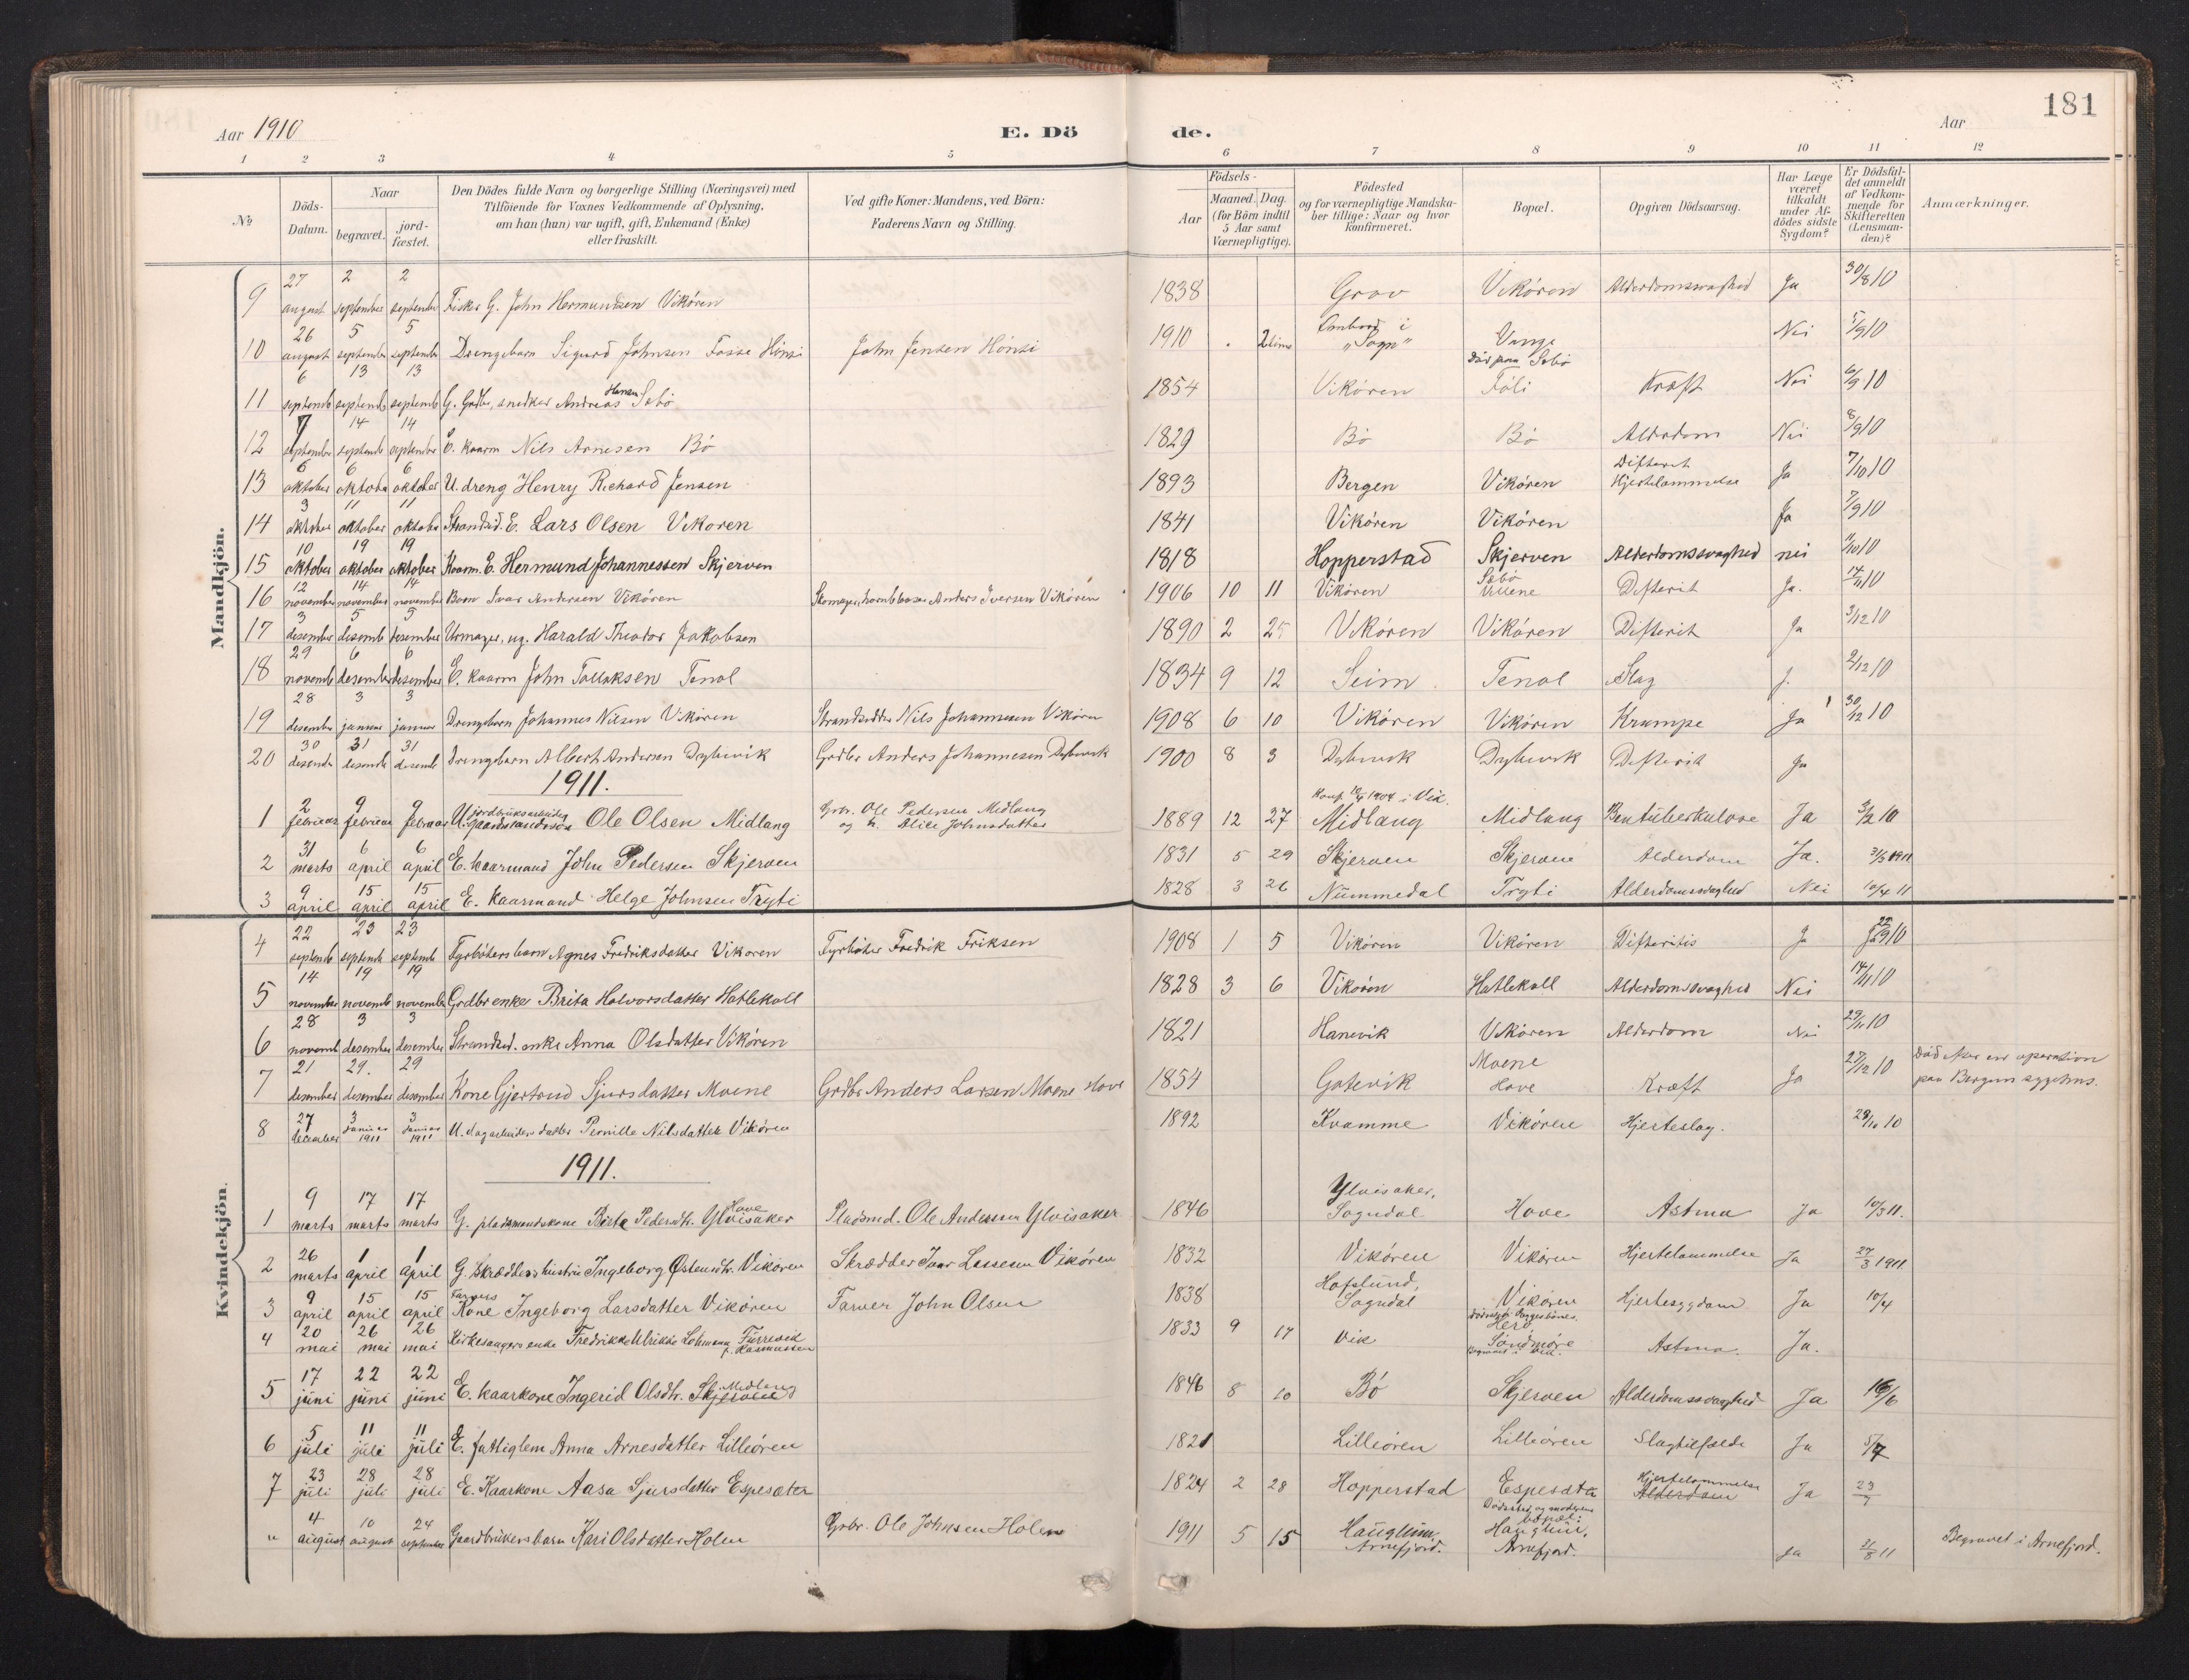 181
Aar 1910 E. Dö de. Aar
1 2 3 4 5 6 7 8 9 10 11 12
No
Döds-Datum.
Naar
begravet. jord-fæstet.
Den Dödes fulde Navn og borgerlige Stilling (Næringsvei) med
Tilföiende for Voxnes Vedkommende af Oplysning,
om han (hun) var ugift, gift, Enkemand (Enke)
eller fraskilt.
Ved gifte Koner: Mandens, ved Börn:
Faderens Navn og Stilling.
Födsels-
Aar Maaned. Dag.
(for Börn indtil
5 Aar samt
Værnepligtige).
Födested
og for værnepligtige Mandska-
ber tillige: Naar og hvor
konfirmeret.
Bopæl.
Opgiven Dödsaarsag.
Har Læge
været
tilkaldt
under Af-
dödes sidste
Sygdom?
Er Dödsfal-
det anmeldt
af Vedkom-
mende for
Skifteretten
(Lensman-
den)?
Anmærkninger.
Mandkjön.
9 27 august 2 september 2 september Fisker G. John Hermundsen Vikören 1838 Grov Vikören Alderdomssvaghed Ja 30/8 10
10 26 august 5 september 5 september Drengebarn Sigurd Johnsen Fosse Hönsi John Jensen Hönsi 1910 Ombord i "Sogn" Vange Nei 5/9 10
11 6 septemb 13 septemb 13 septemb G. Grdbr, snedker Andreas Hansen Sebö 1854 Vikören Föli Kræft Nei 6/9 10
12 7 september 14 septemb 14 september E. kaarm Nils Arnesen Bö 1829 Bö Bö Alderdom Nei 8/9 10
13 6 oktober 6 oktober U. dreng Henry Richard Jensen 1893 Bergen Vikören Difterit Hjertelammelse Ja 7/10 10
14 3 oktober 11 oktober 11 oktober Strandsid. E. Lars Olsen Vikoren 1841 Vikören Vikören Ja 7/9 10
15 10 oktober 19 oktober 19 oktober Kaarm. E. Hermund Johannessen Skjerven 1818 Hopperstad Skjerven Alderdomssvaghed nei
16 12 november 14 november 14 november Barn Ivar Andersen Vikören Anders Iversen Vikören 1906 10 11 Vikören Sæbö Difterit Ja. 14/11 10
17 3 desember 5 desemb 5 desember Urmager, ug. Harald Theodor Jakobsen 1890 2 25 Vikören Vikören Difterit Ja 3/12 10
18 29 novemb 6 desember 6 desember E. kaarm John Tollaksen Tenol 1834 9 12 Seim Tenol Slag J. 2/12 10
19 28 desember 3 januar 3 januar Drengebarn Johannes Nilsen Vikören Strandsidder Nils Johannesen Vikören 1908 6 10 Vikören Vikören Krampe Ja 30/12 10
20 30 desemb 31 desemb 31 desemb Drengebarn Albert Andersen Dybevik Grdbr Anders Johannesen Dybevik 1900 8 3 Dybevik Dybevik Difterit Ja
1911.
1 2 februar 9 februar 9 februar U. jordbruksarbeider Ole Olsen Midlang Grbr. Ole Pedersen Midlang og h. Johnsdatter 1889 12 27 Konf. 1904 i Vik. Midlang Midlang Bentuberkulose Ja 3/2 10
2 31 marts 6 april 6 april E. kaarmand John Pedersen Skjerven 1831 5 29 Skjerven Skjerven Alderdom Ja. 1911
3 9 april 15 april 15 april E. Kaarmand Helge Johnsen Tryti 1828 3 26 Nummedal Tryti Alderdomssvaghed Nei 10/4 11
Kvindekjön.
4 22 septemb 23 septemb 23 septemb Fyrböters barn Agnes Fredriksdatter Vikoren Fyrböter Fredrik Friksen 1908 1 5 Vikören Vikören Difteritis J 22/9 10
5 14 november 19 novemb 19 november Grdbr enke Brita Halvorsdatter Hatlekoll 1828 3 6 Vikören Hatlekoll Alderdomssvaghed Nei 14/11 10
6 28 novemb 3 desember 3 desember Strandsid. enke Anna Olsdatter Vikören 1821 Hanevik Vikören Alderdom Nei 29/11 10
7 21 desember 29. desember 29 desember Kone Gjertrud Sjursdatter Moene Grdbr Anders Larsen Moene Hove 1854 Gotevik Moene Hove Kræft Ja 27/12 10 Död efter en operation paa Bergens sygehus.
8 27 december 3 Januar 1911 3 Januar 1911 U. dagarbeiders datter Pernille Nilsdatter Vikören 1892 Kvamme Vikören Hjerteslag.
1911.
1 9 marts 17 marts 17 marts G. pladsmandskone Brita Pedersdtr. Ylvisaker Hove Pladsmd. Ole Andersen Ylvisaker 1846 Ylvisaker, Sogndal Hove Astma Ja 10/3 11.
2 26 marts 1 april 1 april G. skrædders hustru Ingeborg Östensdtr. Vikören Skrædder Ivar Lassesen Vikören 1832 Vikören Vikören Hjertelammelse Ja 27/3 1911
3 9 april 15 april 15 april Farvers Kone Ingeborg Larsdatter Vikören Farver John Olsen 1838 Hofslund, Sogndal Vikören Hjertesygdom Ja 10/4
4 20 mai 26 mai 26 mai Kirkesangers enke Fredrikke Ulrikke Lohmann Furrevik f. Rasmussen 1833 9 17 Vik Herö, Söndmöre Begravet i Vik. Astma. Ja.
5 17 juni 22 juni 22 juni E. kaarkone Ingerid Olsdtr. Skjerven Midlang 1846 8 10 Bö Skjerven Alderdomssvaghed Ja 16/6
6 5 juli 11 juli 11 juli E. fattiglem Anna Arnesdatter Lilleören 1821 Lilleören Lilleören Slagtilfælde Ja 5/7
7 23 juli 28 juli 28 juli E. Kaarkone Aasa Sjursdatter Espesæter 1824 2 28 Hopperstad Espesæter Hjertelammelse Alderdom Ja 23/7
" 4 august 10 august 24 september Gaardbrukersbarn Kari Olsdatter Holen Grbr. Ole Johnsen Holen 1911 5 15 Hauglum, Arnefjord. Dödssted og moderens bopæl: Hauglum, Arnefjord. Ja 21/8 11 Begravet i Arnefjord.